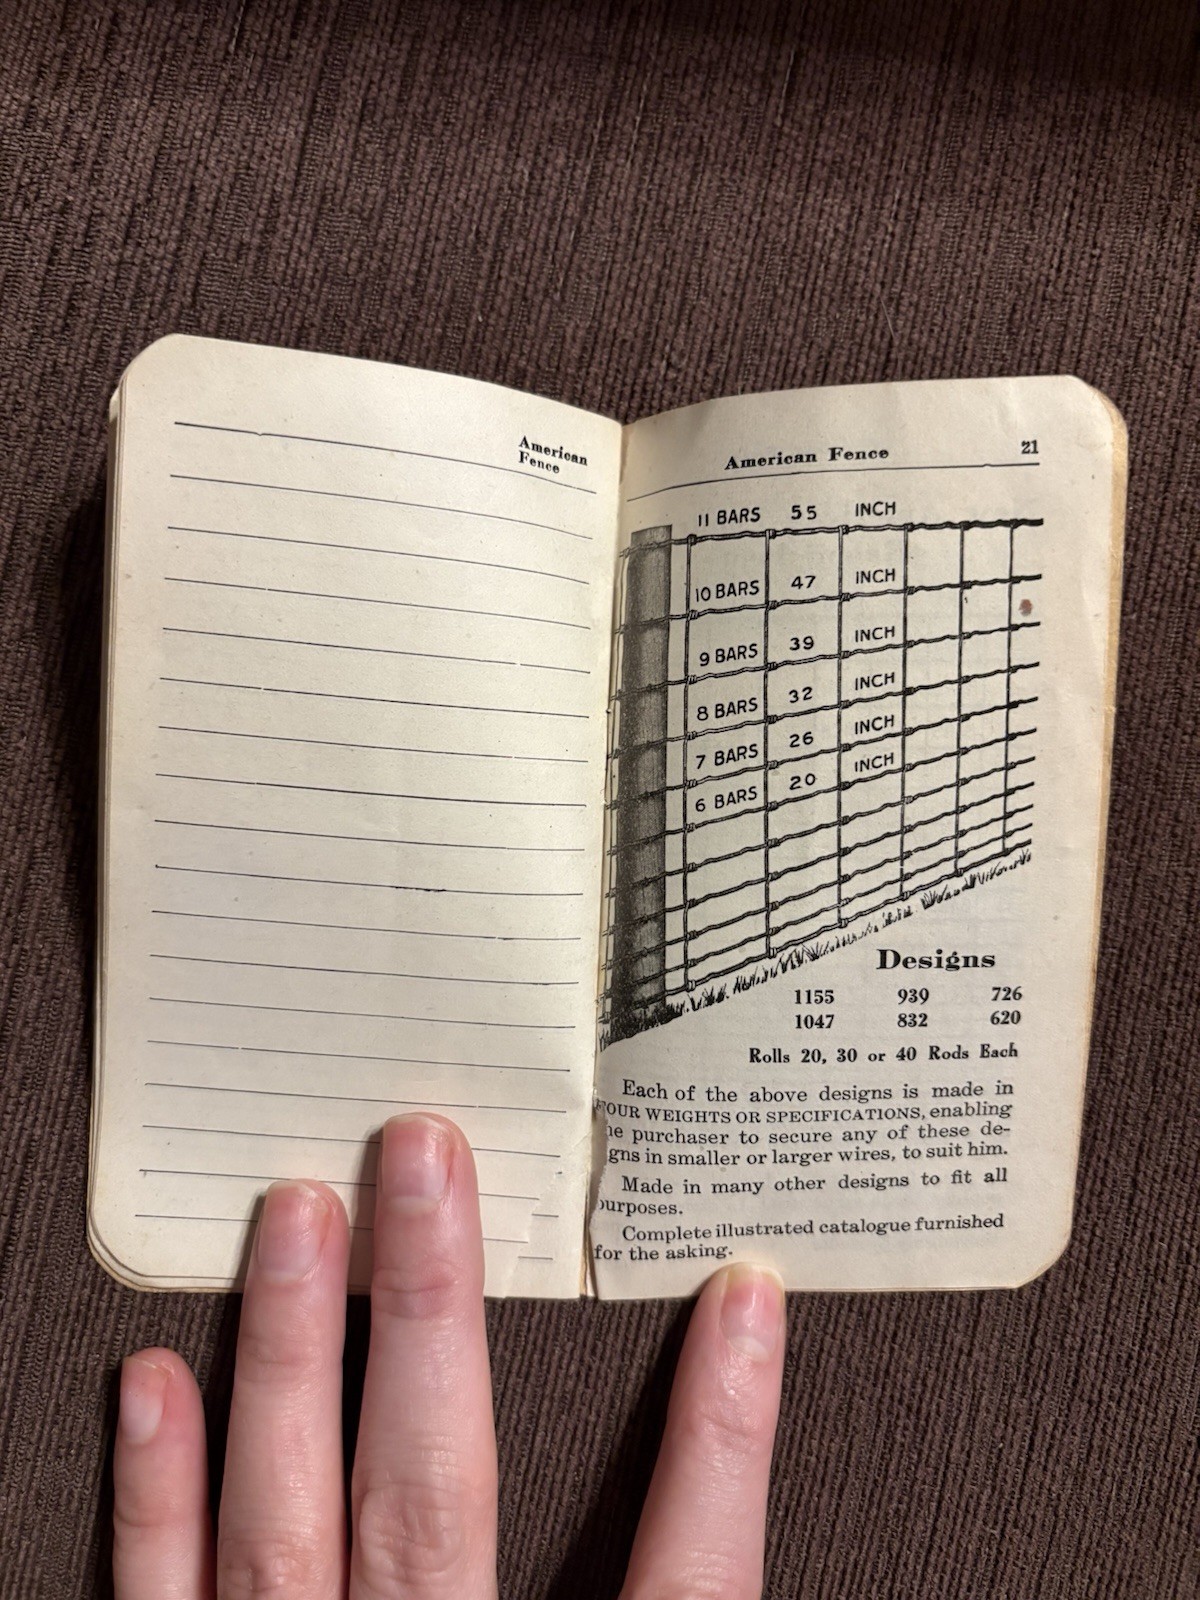 American
Fence
American Fence 21
11 BARS 55 INCH
10 BARS 47 INCH
9 BARS 39 INCH
8 BARS 32 INCH
7 BARS 26 INCH
6 BARS 20 INCH
Designs
1155 939 726
1047 832 620
Rolls 20, 30 or 40 Rods Each
Each of the above designs is made in
FOUR WEIGHTS OR SPECIFICATIONS, enabling
he purchaser to secure any of these de-
gns in smaller or larger wires, to suit him.
Made in many other designs to fit all
purposes.
Complete illustrated catalogue furnished
for the asking.